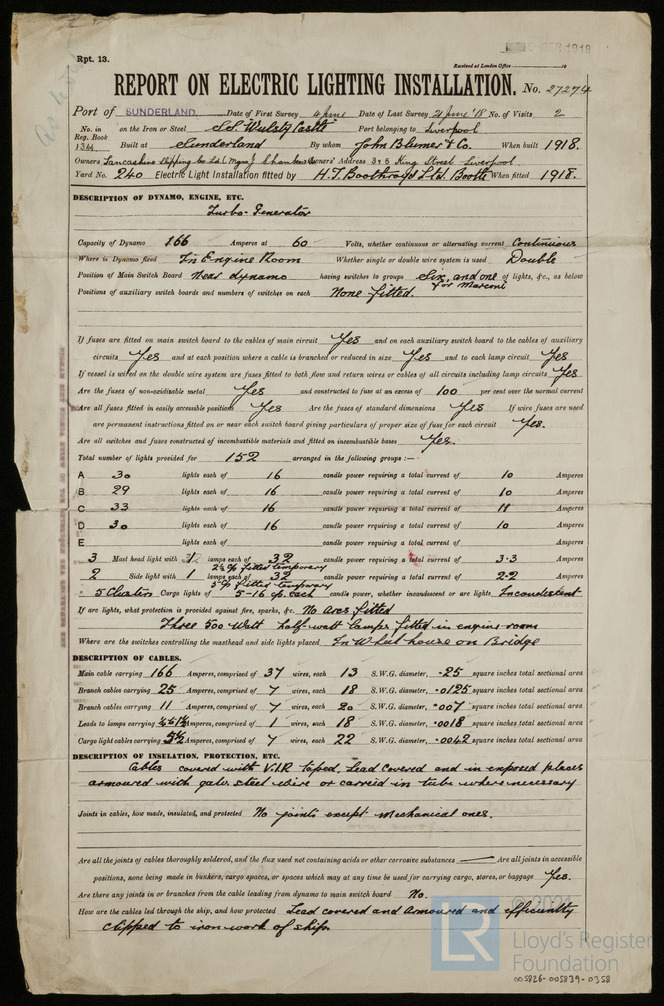 Rpt. 13.
1918
Received at London Office
REPORT ON ELECTRIC LIGHTING INSTALLATION. No. 27274
Port of SUNDERLAND Date of First Survey 4 June Date of Last Survey 21 June '18 No. of Visits 2
No. in Reg. Book 1364 on the Iron or Steel S.S. Wulsty Castle Port belonging to Liverpool
Built at Sunderland By whom John Blumer & Co. When built 1918.
Owners Lancashire Shipping Co Ld. Owners' Address 3 & 6 King Street Liverpool
Yard No. 240 Electric Light Installation fitted by H.T. Boothroyd Ltd. Bootle When fitted 1918.
DESCRIPTION OF DYNAMO, ENGINE, ETC.
Turbo-Generator
Capacity of Dynamo 166 Amperes at 60 Volts, whether continuous or alternating current Continuous
Where is Dynamo fixed In Engine Room Whether single or double wire system is used Double
Position of Main Switch Board Near dynamo having switches to groups Six, and one for Marconi of lights, &c., as below
Positions of auxiliary switch boards and numbers of switches on each None fitted.
If fuses are fitted on main switch board to the cables of main circuit Yes and on each auxiliary switch board to the cables of auxiliary
circuits Yes and at each position where a cable is branched or reduced in size Yes and to each lamp circuit Yes
If vessel is wired on the double wire system are fuses fitted to both flow and return wires or cables of all circuits including lamp circuits Yes
Are the fuses of non-oxidizable metal Yes and constructed to fuse at an excess of 100 per cent over the normal current
Are all fuses fitted in easily accessible positions Yes Are the fuses of standard dimensions Yes If wire fuses are used
are permanent instructions fitted on or near each switch board giving particulars of proper size of fuse for each circuit Yes.
Are all switches and fuses constructed of incombustible materials and fitted on incombustible bases Yes.
Total number of lights provided for 152 arranged in the following groups :—
A 30 lights each of 16 candle power requiring a total current of 10 Amperes
B 29 lights each of 16 candle power requiring a total current of 10 Amperes
C 33 lights each of 16 candle power requiring a total current of 11 Amperes
D 30 lights each of 16 candle power requiring a total current of 10 Amperes
E lights each of candle power requiring a total current of Amperes
3 Mast head light with 1 lamps each of 32 candle power requiring a total current of 3.3 Amperes
fitted temporary
2 Side light with 1 lamps each of 32 candle power requiring a total current of 2.2 Amperes
fitted temporary
5 Clusters Cargo lights of 5-16 cp. each candle power, whether incandescent or arc lights Incandescent
If arc lights, what protection is provided against fire, sparks, &c. No Arcs fitted
Three 500 Watt half-watt lamps fitted in engine room
Where are the switches controlling the masthead and side lights placed In Wheel house on Bridge
DESCRIPTION OF CABLES.
Main cable carrying 166 Amperes, comprised of 37 wires, each 13 S.W.G. diameter, .25 square inches total sectional area
Branch cables carrying 25 Amperes, comprised of 7 wires, each 18 S.W.G. diameter, .0125 square inches total sectional area
Branch cables carrying 11 Amperes, comprised of 7 wires, each 20 S.W.G. diameter, .007 square inches total sectional area
Leads to lamps carrying Amperes, comprised of 1 wires, each 18 S.W.G. diameter, .0018 square inches total sectional area
Cargo light cables carrying 5½ Amperes, comprised of 7 wires, each 22 S.W.G. diameter, .0042 square inches total sectional area
DESCRIPTION OF INSULATION, PROTECTION, ETC.
Cables covered with V.I.R taped, Lead Covered and in exposed places
armoured with galv steel wire or carried in tube where necessary
Joints in cables, how made, insulated, and protected No joints except mechanical ones.
Are all the joints of cables thoroughly soldered, and the flux used not containing acids or other corrosive substances — Are all joints in accessible
positions, none being made in bunkers, cargo spaces, or spaces which may at any time be used for carrying cargo, stores, or baggage Yes.
Are there any joints or branches from the cable leading from dynamo to main switch board No.
How are the cables led through the ship, and how protected Lead covered and Armoured and efficiently
clipped to iron work of ship
LR
Lloyd's Register
Foundation
005826-005839-0358